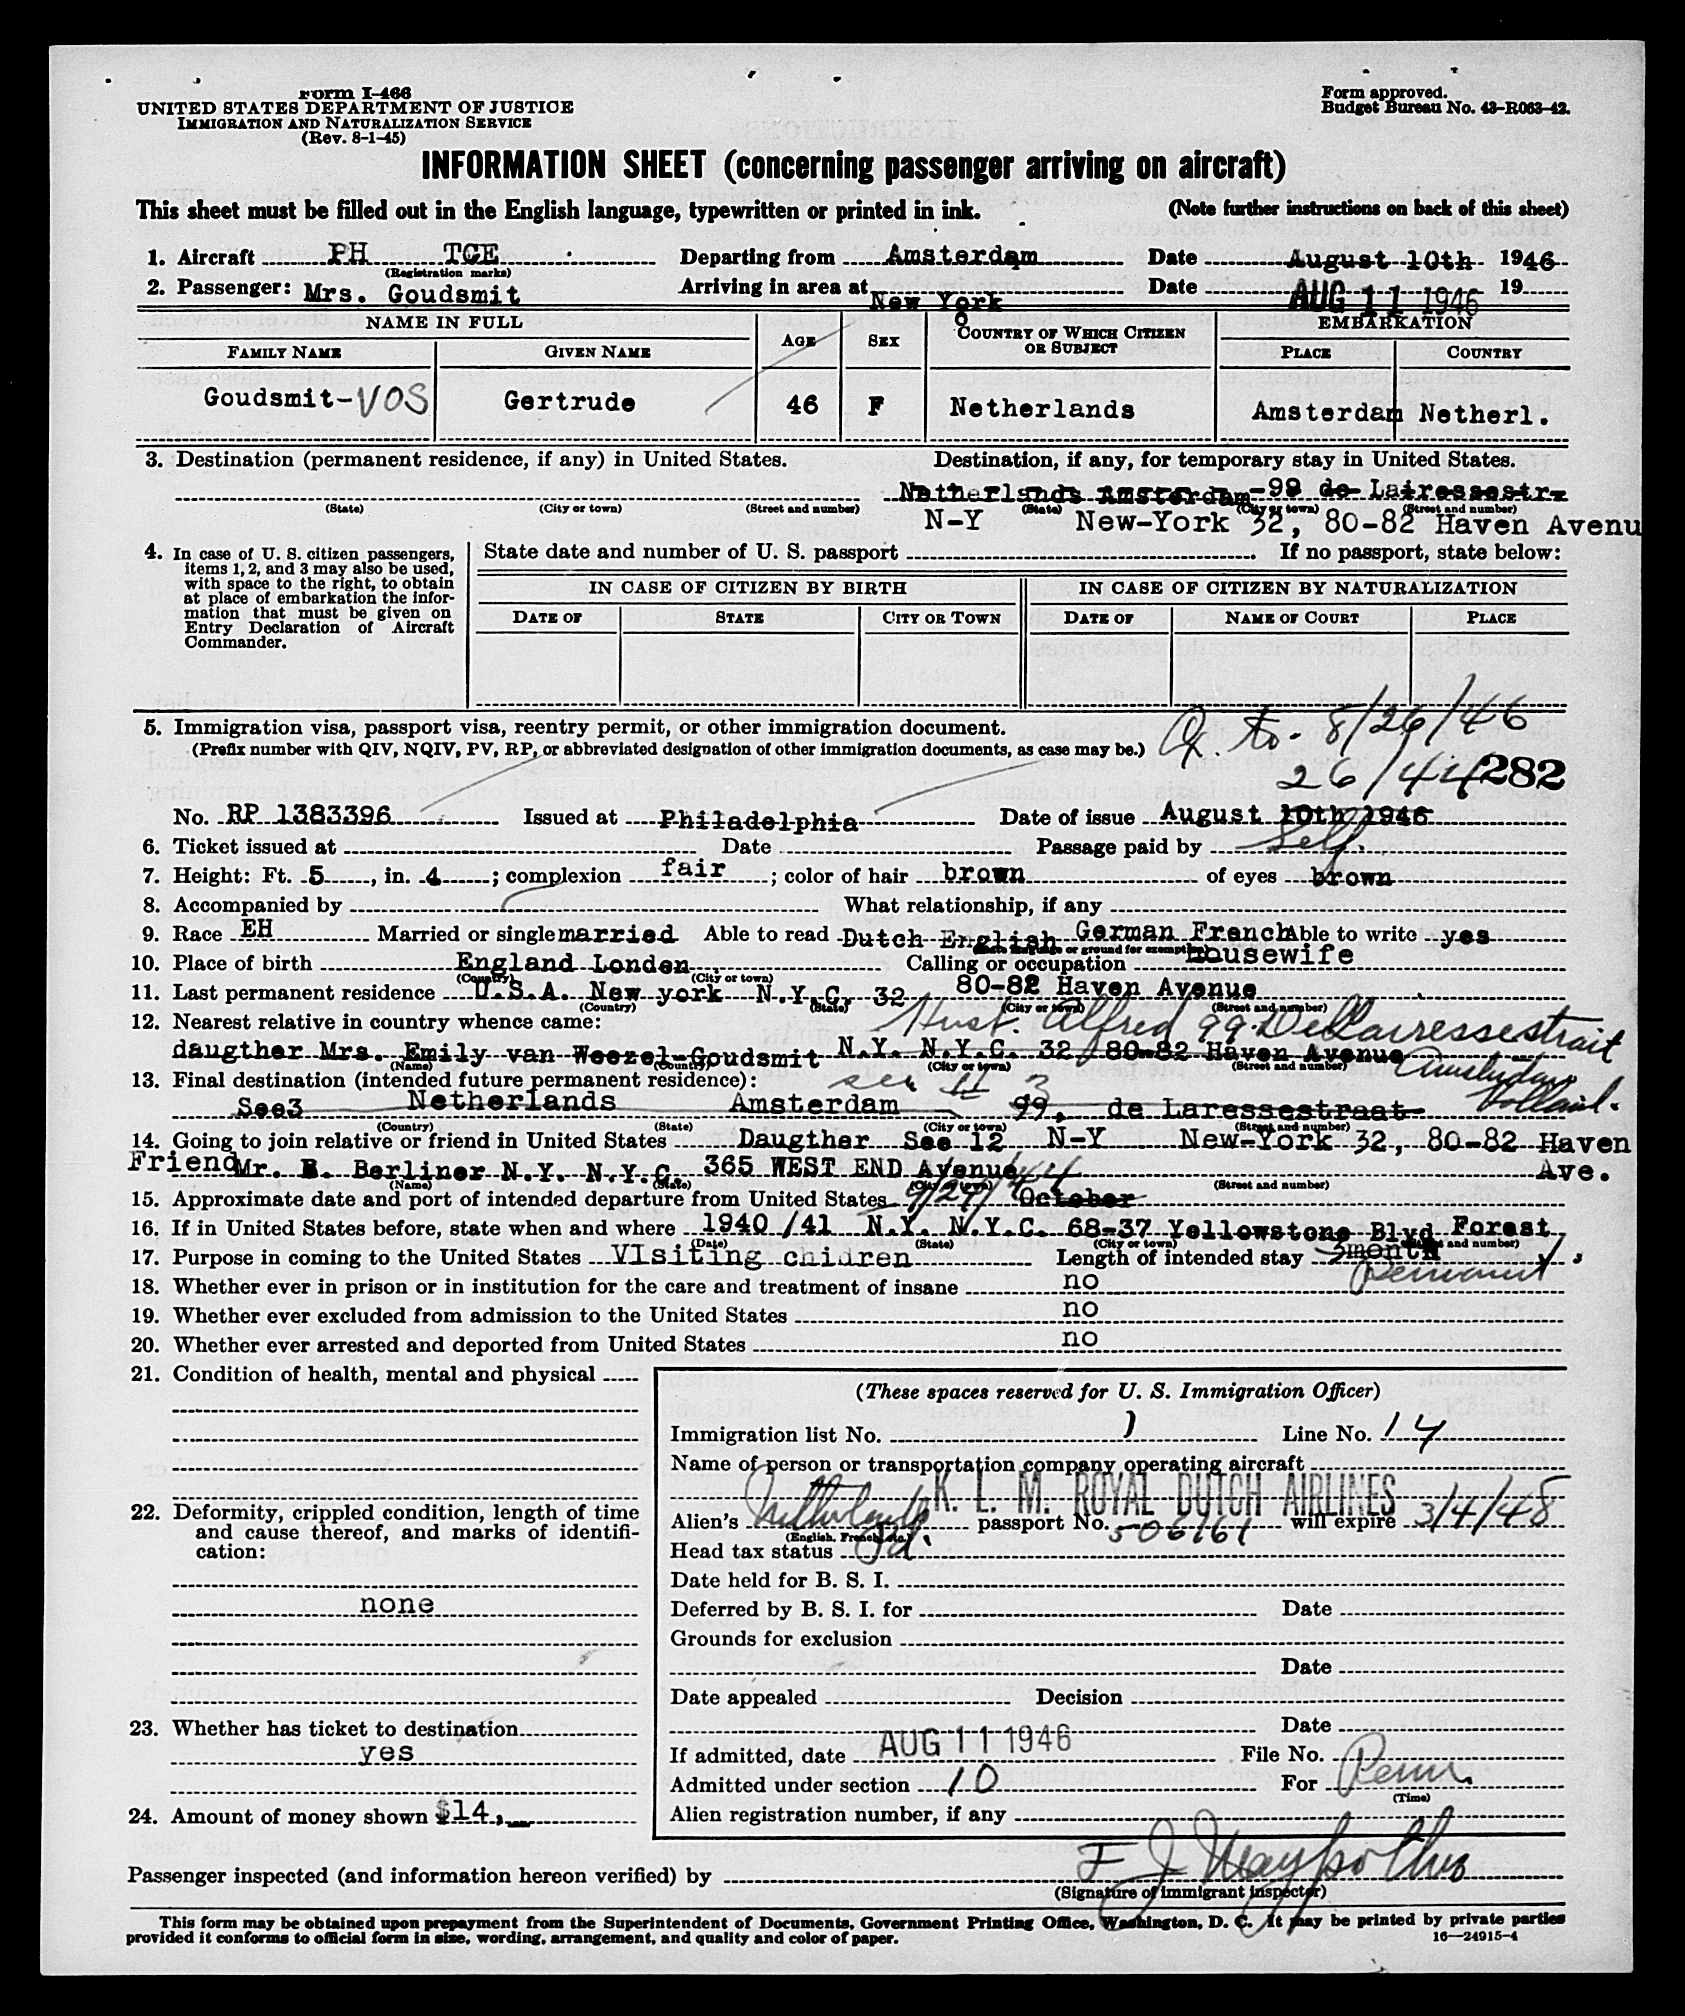 Form I-466
UNITED STATES DEPARTMENT OF JUSTICE
IMMIGRATION AND NATURALIZATION SERVICE
(Rev. 8-1-45)
Form approved.
Budget Bureau No. 43-R063-42.
INFORMATION SHEET (concerning passenger arriving on aircraft)
This sheet must be filled out in the English language, typewritten or printed in ink. (Note further instructions on back of this sheet)
1. Aircraft PH TCE Departing from Amsterdam Date August 10th 1946
(Registration marks)
2. Passenger: Mrs. Goudsmit Arriving in area at New York Date AUG 11 1946 19
NAME IN FULL AGE SEX COUNTRY OF WHICH CITIZEN OR SUBJECT EMBARKATION
FAMILY NAME GIVEN NAME PLACE COUNTRY
Goudsmit-VOS Gertrude 46 F Netherlands Amsterdam Netherl.
3. Destination (permanent residence, if any) in United States. Destination, if any, for temporary stay in United States.
Netherlands Amsterdam-99 de Lairessestr
(State) (City or town) (Street and number) (State) (City or town) (Street and number)
N-Y New-York 32, 80-82 Haven Avenu
4. In case of U. S. citizen passengers, items 1, 2, and 3 may also be used, with space to the right, to obtain at place of embarkation the information that must be given on Entry Declaration of Aircraft Commander.
State date and number of U. S. passport If no passport, state below:
IN CASE OF CITIZEN BY BIRTH IN CASE OF CITIZEN BY NATURALIZATION
DATE OF STATE CITY OR TOWN DATE OF NAME OF COURT PLACE
5. Immigration visa, passport visa, reentry permit, or other immigration document.
(Prefix number with QIV, NQIV, PV, RP, or abbreviated designation of other immigration documents, as case may be.)
to- 8/26/46
26/44282
No. RP 1383396 Issued at Philadelphia Date of issue August 10th 1946
6. Ticket issued at Date Passage paid by Self.
7. Height: Ft. 5, in. 4; complexion fair; color of hair brown of eyes brown
8. Accompanied by What relationship, if any
9. Race EH Married or single married Able to read Dutch English German French Able to write yes
10. Place of birth England London Calling or occupation housewife
(Country) (City or town)
11. Last permanent residence U.S.A. New york N.Y.C. 32 80-82 Haven Avenue
(Country) (State) (City or town) (Street and number)
12. Nearest relative in country whence came: Hust. Alfred 99 De Lairessestrait
daugther Mrs. Emily van Weezel-Goudsmit N.Y. N.Y.C. 32 80-82 Haven Avenue Amsterdam
(Name) (Country) (City or town) (Street and number)
13. Final destination (intended future permanent residence): see # 3 Holland.
See3 Netherlands Amsterdam 99, de Laressestraat
(Country) (State) (City or town) (Street and number)
14. Going to join relative or friend in United States Daugther See 12 N-Y New-York 32, 80-82 Haven
Friend Mr. B. Berliner N.Y. N.Y.C. 365 WEST END Avenue Ave.
(Name) (State) (City or town) (Street and number)
15. Approximate date and port of intended departure from United States October
16. If in United States before, state when and where 1940/41 N.Y. N.Y.C. 68-37 Yellowstone Blvd Forest
(Date) (State) (City or town) (Street and number)
17. Purpose in coming to the United States VIsiting chidren Length of intended stay 3month
18. Whether ever in prison or in institution for the care and treatment of insane no
19. Whether ever excluded from admission to the United States no
20. Whether ever arrested and deported from United States no
21. Condition of health, mental and physical
22. Deformity, crippled condition, length of time and cause thereof, and marks of identification:
none
23. Whether has ticket to destination
yes
24. Amount of money shown $14,-
(These spaces reserved for U. S. Immigration Officer)
Immigration list No. 1 Line No. 14
Name of person or transportation company operating aircraft
K. L. M. ROYAL DUTCH AIRLINES
Alien's Netherlands passport No. 506161 will expire 3/4/48
(English, French, etc.)
Head tax status Pd.
Date held for B. S. I.
Deferred by B. S. I. for Date
Grounds for exclusion
Date
Date appealed Decision
Date
If admitted, date AUG 11 1946 File No.
Admitted under section 10 For Perm.
(Time)
Alien registration number, if any
Passenger inspected (and information hereon verified) by F J
(Signature of immigrant inspector)
This form may be obtained upon prepayment from the Superintendent of Documents, Government Printing Office, Washington, D. C. It may be printed by private parties
provided it conforms to official form in size, wording, arrangement, and quality and color of paper.
16—24915-4